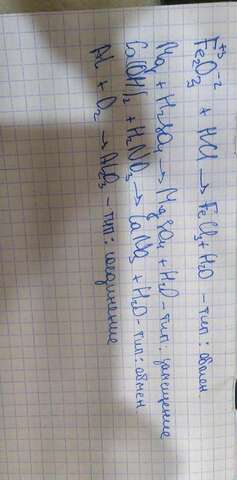 +3 -2
Fe2O3 + HCl → FeCl3 + H2O - тип: обмен
Mg + H2SO4 → MgSO4 + H2O - тип: замещение
Ca(OH)2 + H2NO3 → CaNO3 + H2O - тип: обмен
Al + O2 → Al2O3 - тип: соединение